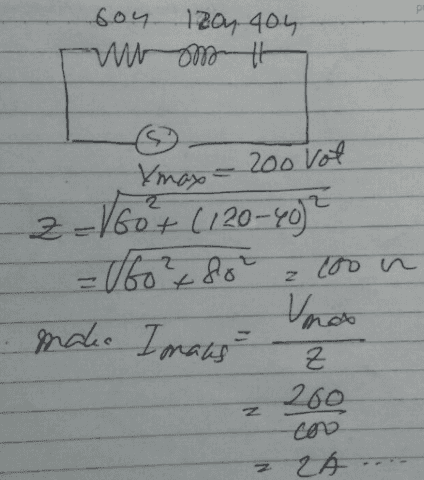 60Ω 120Ω 40Ω
S
Vmax = 200 Volt
Z = √60² + (120-40)²
= √60² + 80² = 100 Ω
maka Imaks = Vmax / Z
= 200 / 100
= 2A ....